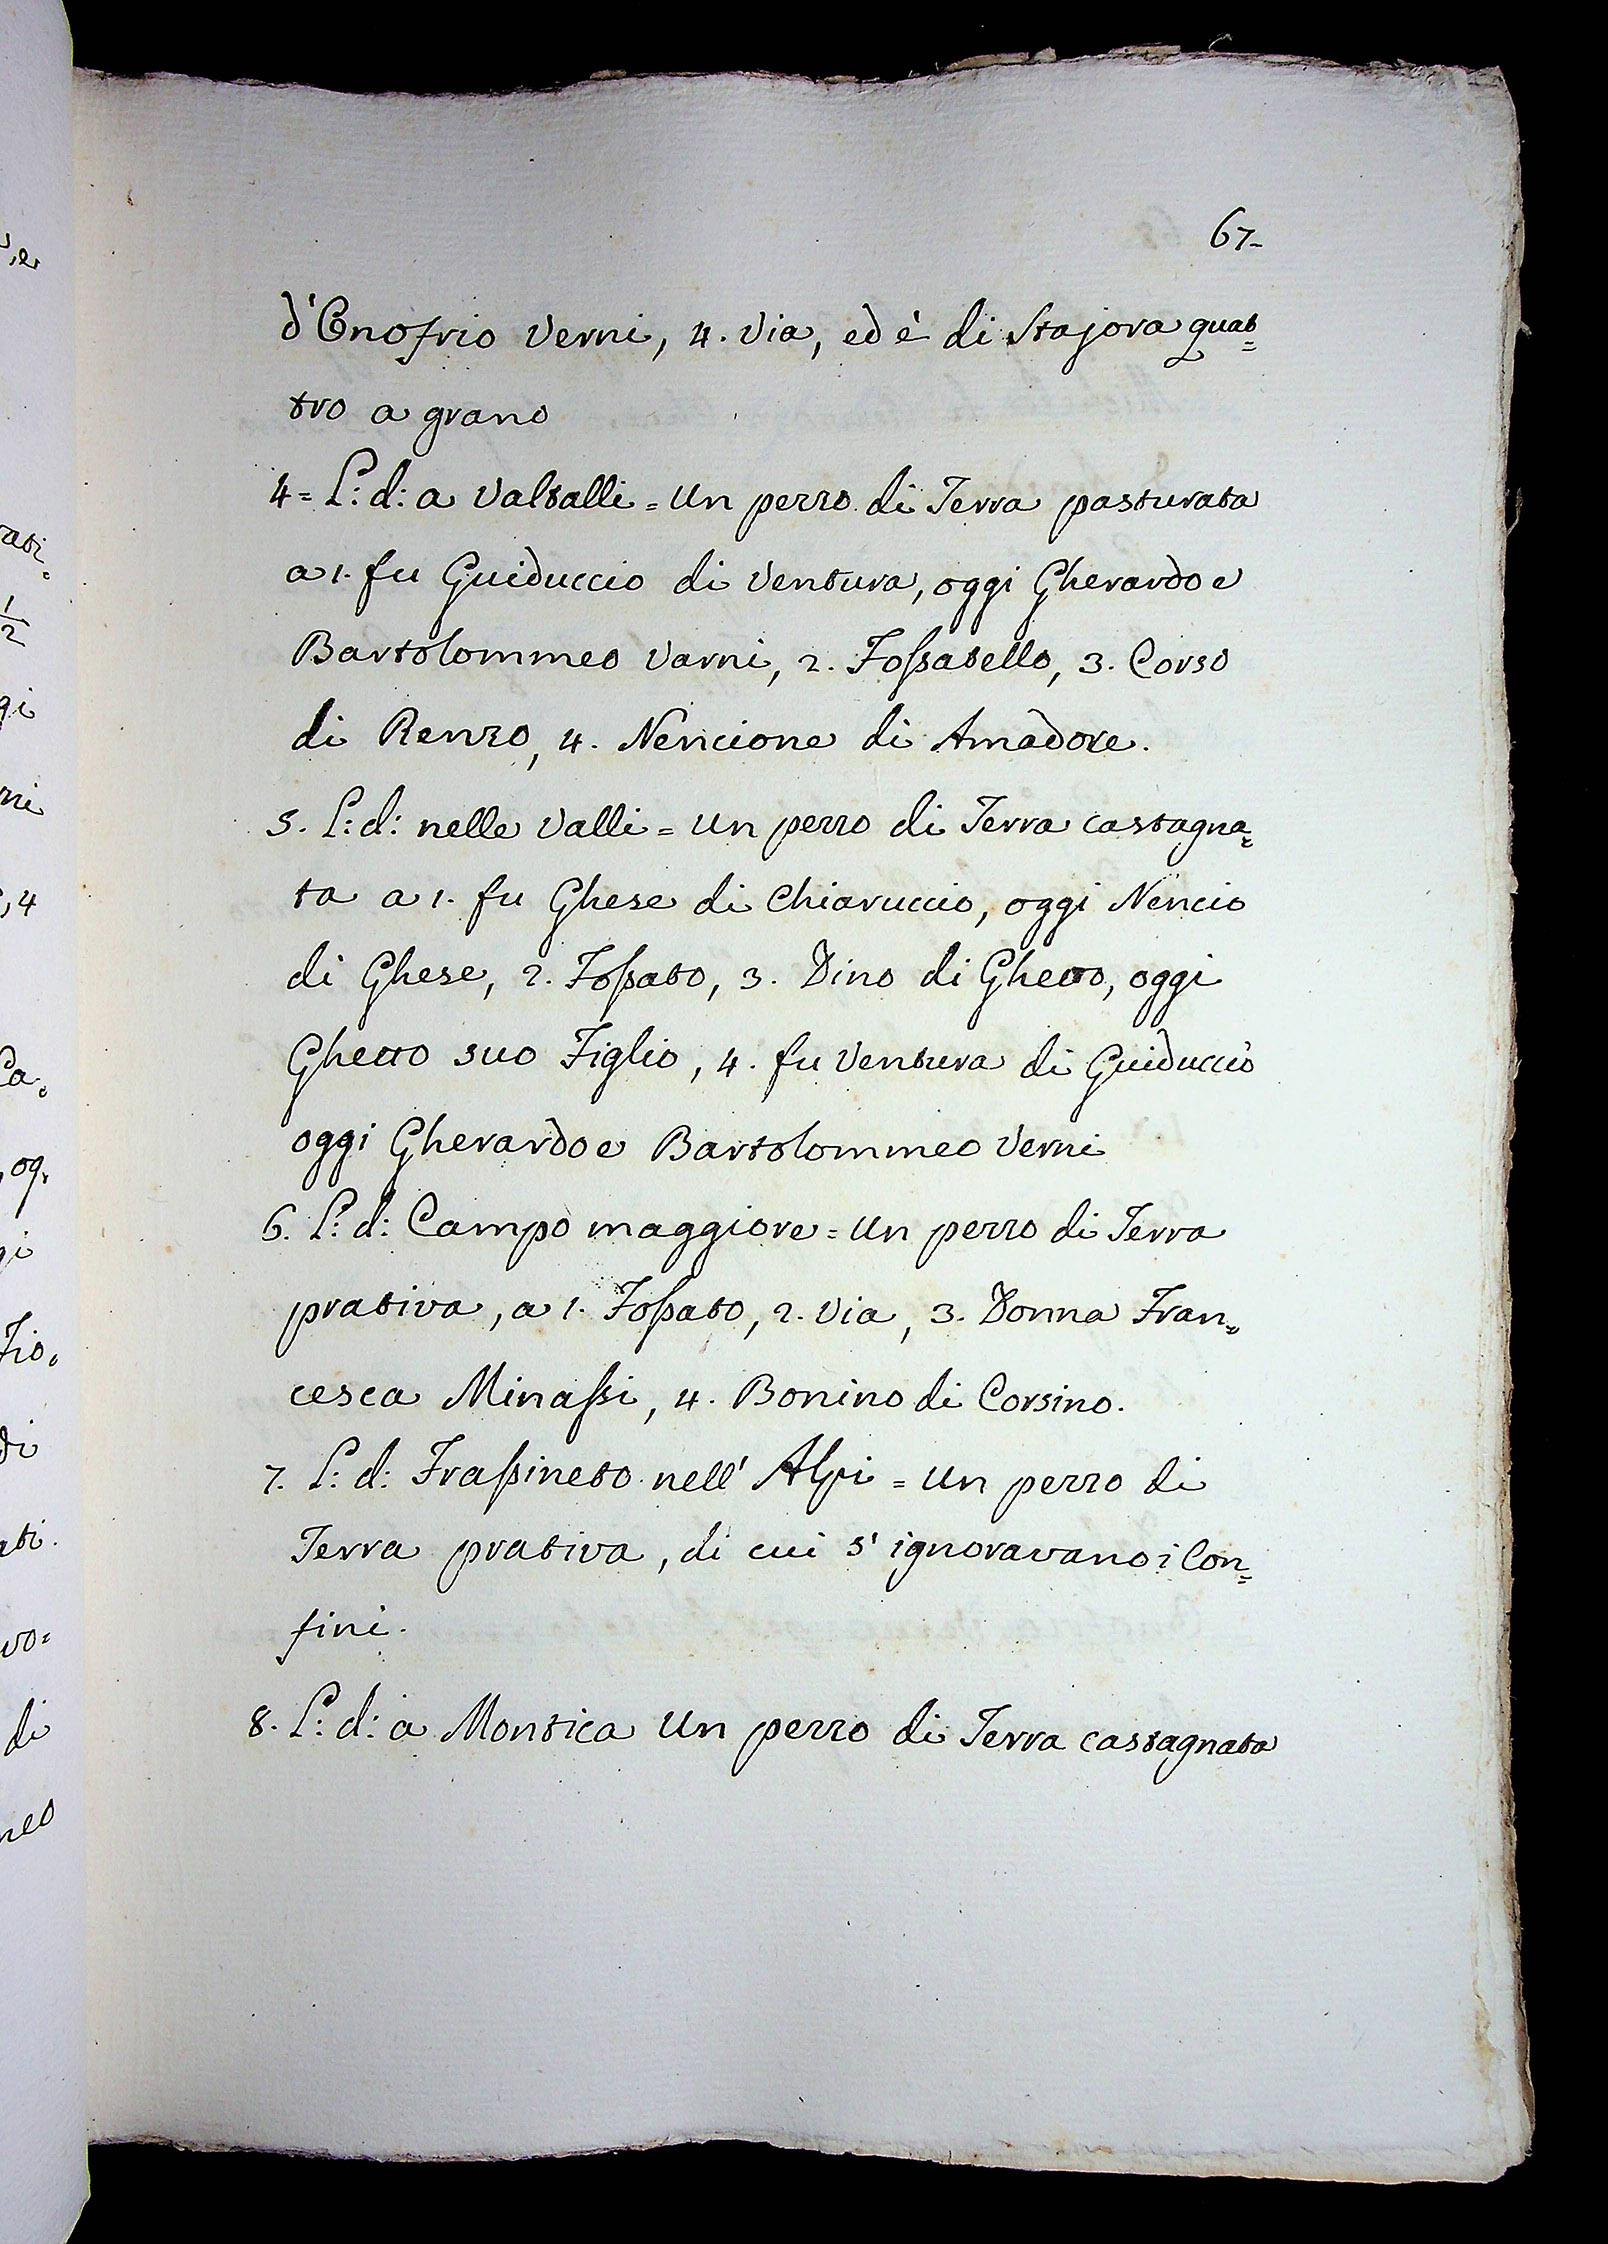 67.
d'Onofrio Verni, 4. Via, ed è di Stajora quat=
tro a grano
4= L: d: a Valtalli = Un pezzo di Terra pasturata
a 1. fu Guiduccio di Ventura, oggi Gherardo e
Bartolommeo Varni, 2. Fossatello, 3. Corso
di Renzo, 4. Nencione di Amadore.
5. L: d: nelle Valli = Un pezzo di Terra castagna=
ta a 1. fu Ghese di Chiaruccio, oggi Nencio
di Ghese, 2. Fossato, 3. Dino di Ghetto, oggi
Ghetto suo Figlio, 4. fu Ventura di Guiduccio
oggi Gherardo e Bartolommeo Verni
6. L: d: Campo maggiore = Un pezzo di Terra
prativa, a 1. Fossato, 2. Via, 3. Donna Fran=
cesca Minassi, 4. Bonino di Corsino.
7. L: d: Frassineto nell' Alpi = Un pezzo di
Terra prativa, di cui s' ignoravano i Con=
fini.
8. L: d: a Montica Un pezzo di Terra castagnata